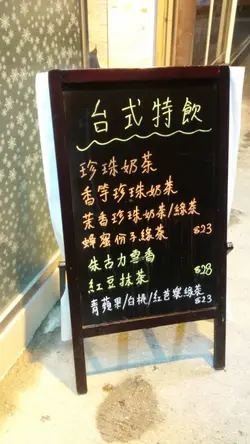 台式特飲
珍珠奶茶
香芋珍珠奶茶
茉香珍珠奶茶/綠茶
蜂蜜份子綠茶 $23
朱古力雪
紅豆抹茶 $28
青蘋果/白桃/紅芭樂綠茶 $23